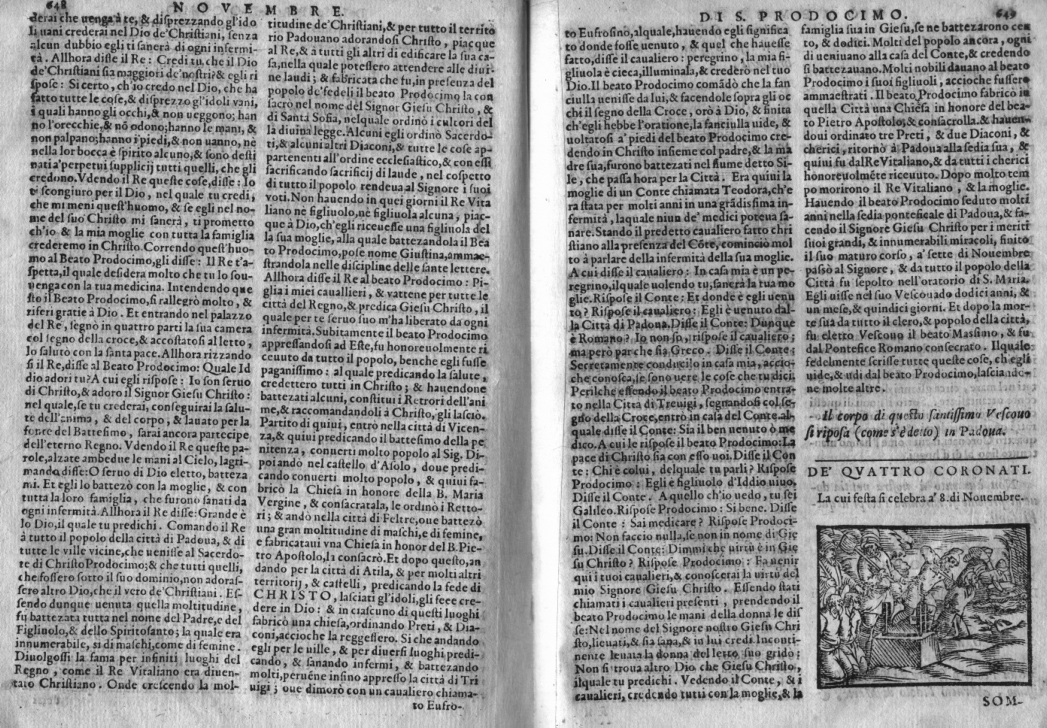 648
NOVEMBRE.
derai che uenga à te, & disprezzando gl'ido
li uani crederai nel Dio de' Christiani, senza
alcun dubbio egli ti sanerà di ogni infermi-
tà. Allhora disse il Re: Credi tu, che il Dio
de' Christiani sia maggiori de' nostri? & egli ri
spose: Si certo, ch'io credo nel Dio, che ha
fatto tutte le cose, & disprezzo gl'idoli vani,
i quali hanno gli occhi, & non ueggono; han
no l'orecchie, & nõ odono; hanno le mani, &
non palpano; hanno i piedi, & non uanno, nè
nella lor bocca è spirito alcuno, & sono desti
nati a' perpetui supplicij tutti quelli, che gli
credono. Vdendo il Re queste cose, disse: Io
ti scongiuro per il Dio, nel quale tu credi,
che mi meni quest'huomo, & se egli nel no-
me del suo Christo mi sanerà, ti prometto
ch'io & la mia moglie con tutta la famiglia
crederemo in Christo. Correndo quest'huo-
mo al Beato Prodocimo, gli disse: Il Re t'a-
spetta, il quale desidera molto che tu lo sou-
uenga con la tua medicina. Intendendo que
sto il Beato Prodocimo, si rallegrò molto, &
riferì gratie à Dio. Et entrando nel palazzo
del Re, segnò in quattro parti la sua camera
col segno della croce, & accostatosi al letto,
lo salutò con la santa pace. Allhora rizzando
si il Re, disse al Beato Prodocimo: Quale Id
dio adori tu? A cui egli rispose: Io son seruo
di Christo, & adoro il Signor Giesu Christo:
nel quale, se tu crederai, conseguirai la salu-
te dell'anima, & del corpo, & lauato per la
fonte del Battesimo, sarai ancora partecipe
dell'eterno Regno. Vdendo il Re queste pa-
role, alzate ambedue le mani al Cielo, lagri-
mando disse: O seruo di Dio eletto, batteza
mi. Et egli lo battezò con la moglie, & con
tutta la loro famiglia, che furono sanati da
ogni infermità. Allhora il Re disse: Grande è
lo Dio, il quale tu predichi. Comando il Re
à tutto il popolo della città di Padoua, & di
tutte le ville vicine, che uenisse al Sacerdo-
te di Christo Prodocimo; & che tutti quelli,
che fossero sotto il suo dominio, non adoras-
sero altro Dio, che il vero de' Christiani. Es-
sendo dunque uenuta quella moltitudine,
fu battezata tutta nel nome del Padre, e del
Figliuolo, & dello Spiritosanto; la quale era
innumerabile, si di maschi, come di femine.
Diuolgossi la fama per infiniti luoghi del
Regno, come il Re Vitaliano era diuen-
tato Christiano. Onde crescendo la mol-
titudine de' Christiani, & per tutto il territo
rio Padouano adorandosi Christo, piacque
al Re, & à tutti gli altri di edificare la sua ca-
sa, nella quale potessero attendere alle diui-
ne laudi; & fabricata che fu, in presenza del
popolo de' fedeli il beato Prodocimo la con
sacrò nel nome del Signor Giesu Christo, &
di Santa Sofia, nel quale ordinò i cultori del
la diuina legge. Alcuni egli ordinò Sacerdo-
ti, & alcuni altri Diaconi, & tutte le cose ap-
partenenti all'ordine ecclesiastico, & con essi
sacrificando sacrificij di laude, nel cospetto
di tutto il popolo rendeua al Signore i suoi
voti. Non hauendo in quei giorni il Re Vita
liano nè figliuolo, nè figliuola alcuna, piac-
que à Dio, ch'egli riceuesse una figliuola del
la sua moglie, alla quale battezandola il Bea
to Prodocimo, pose nome Giustina, ammae-
strandola nelle discipline delle sante lettere.
Allhora disse il Re al beato Prodocimo: Pi-
glia i miei cauallieri, & vattene per tutte le
città del Regno, & predica Giesu Christo, il
quale per te seruo suo m'ha liberato da ogni
infermità. Subitamente il beato Prodocimo
appressandosi ad Este, fu honoreuolmente ri
ceuuto da tutto il popolo, benche egli fusse
paganissimo: al quale predicando la salute,
credettero tutti in Christo; & hauendone
battezati alcuni, constituì i Rettori dell'ani
me, & raccomandandoli à Christo, gli lasciò.
Partito di quiui, entrò nella città di Vicen-
za, & quiui predicando il battesimo della pe
nitenza, conuertì molto popolo al Sig. Di-
poi andò nel castello d'Asolo, doue predi-
cando conuertì molto popolo, & quiui fa-
bricò la Chiesa in honore della B. Maria
Vergine, & consacratala, le ordinò i Retto-
ri; & andò nella città di Feltre, oue battezò
una gran moltitudine di maschi, e di femine,
e fabricataui vna Chiesa in honor del B. Pie-
tro Apostolo, la consacrò. Et dopo questo, an
dando per la città di Atila, & per molti altri
territorij, & castelli, predicando la fede di
CHRISTO, lasciati gl'idoli, gli fece cre-
dere in Dio: & in ciascuno di questi luoghi
fabricò una chiesa, ordinando Preti, & Dia-
coni, accioche la reggessero. Si che andando
egli per le uille, & per diuersi luoghi predi-
cando, & sanando infermi, & battezando
molti, peruene insino appresso la città di Tri
uigi; oue dimorò con un caualiero chiama-
to Eufro-
DI S. PRODOCIMO.
649
to Eufrosino, al quale, hauendo egli significa
to donde fosse uenuto, & quel che hauesse
fatto, disse il caualiero: peregrino, la mia fi-
gliuola è cieca, illuminala, & crederò nel tuo
Dio. Il beato Prodocimo comãdò che la fan
ciulla uenisse da lui, & facendole sopra gli oc
chi il segno della Croce, orò à Dio, & finita
ch'egli hebbe l'oratione, la fanciulla uide, &
uoltatosi a' piedi del beato Prodocimo cre-
dendo in Christo insieme col padre, & la ma
dre sua, furono battezati nel fiume detto Si-
le, che passa hora per la Città. Era quiui la
moglie di un Conte chiamata Teodora, ch'e
ra stata per molti anni in una grãdissima in-
fermità, la quale niun de' medici poteua sa-
nare. Stando il predetto caualiero fatto chri
stiano alla presenza del Cõte, cominciò mol
to à parlare della infermità della sua moglie.
A cui disse il caualiero: In casa mia è un pe-
regrino, il quale uolendo tu, sanerà la tua mo
glie. Rispose il Conte: Et donde è egli uenu
to? Rispose il caualiero: Egli è uenuto dal-
la Città di Padoua. Disse il Conte: Dunque
è Romano? Io non so, rispose il caualiero;
ma però par che sia Greco. Disse il Conte:
Secretamente conducilo in casa mia, accio-
che conosca, se sono uere le cose che tu dici.
Perilche essendo il beato Prodocimo entra-
to nella Città di Treuigi, segnandosi col se-
gno della Croce, entrò in casa del Conte. al-
quale disse il Conte: Sia il ben uenuto ò me
dico. A cui le rispose il beato Prodocimo: La
pace di Christo sia con esso uoi. Disse il Con
te: Chi è colui, del quale tu parli? Rispose
Prodocimo: Egli è figliuolo d'Iddio uiuo.
Disse il Conte. A quello ch'io uedo, tu sei
Galileo. Rispose Prodocimo: Si bene. Disse
il Conte: Sai medicare? Rispose Prodoci-
mo: Non faccio nulla, se non in nome di Gie
su. Disse il Conte: Dimmi che uirtù è in Gie
su Christo? Rispose Prodocimo: Fa uenir
qui i tuoi caualieri, & conoscerai la uirtù del
mio Signore Giesu Christo. Essendo stati
chiamati i caualieri presenti, prendendo il
beato Prodocimo le mani della donna le dis
se: Nel nome del Signore nostro Giesu Chri
sto, lieuati, & sia sana, & in lui credi. Inconti-
nente leuata la donna del letto, suo grido;
Non si troua altro Dio che Giesu Christo,
il quale tu predichi. Vedendo il Conte, & i
caualieri, credendo tutti con la moglie, & la
famiglia sua in Giesu, se ne battezarono cen
to, & dodici. Molti del popolo ancora, ogni
dì ueniuano alla casa del Conte, & credendo
si battezauano. Molti nobili dauano al beato
Prodocimo i suoi figliuoli, accioche fussero
ammaestrati. Il beato Prodocimo fabricò in
quella Città una Chiesa in honore del bea-
to Pietro Apostolo; & consacrolla. & hauen-
doui ordinato tre Preti, & due Diaconi, &
cherici, ritornò à Padoua alla sedia sua, &
quiui fu dal Re Vitaliano, & da tutti i cherici
honoreuolmẽte riceuuto. Dopo molto tem
po morirono il Re Vitaliano, & la moglie.
Hauendo il beato Prodocimo seduto molti
anni nella sedia pontificale di Padoua, & fa-
cendo il Signore Giesu Christo per i meriti
suoi grandi, & innumerabili miracoli, finito
il suo maturo corso, a' sette di Nouembre
passò al Signore, & da tutto il popolo della
Città fu sepolto nell'oratorio di S. Maria.
Egli uisse nel suo Vescouado dodici anni, &
un mese, & quindici giorni. Et dopo la mor-
te sua da tutto il clero, & popolo della città,
fu eletto Vescouo il beato Massimo, & fu
dal Pontefice Romano consecrato. Il quale
fedelmente scrisse tutte queste cose, ch'egli
uide, & udì dal beato Prodocimo, lasciando-
ne molte altre.
Il corpo di questo santissimo Vescouo
si riposa (come s'è detto) in Padoua.
DE' QVATTRO CORONATI.
La cui festa si celebra a' 8. di Nouembre.
SOM-